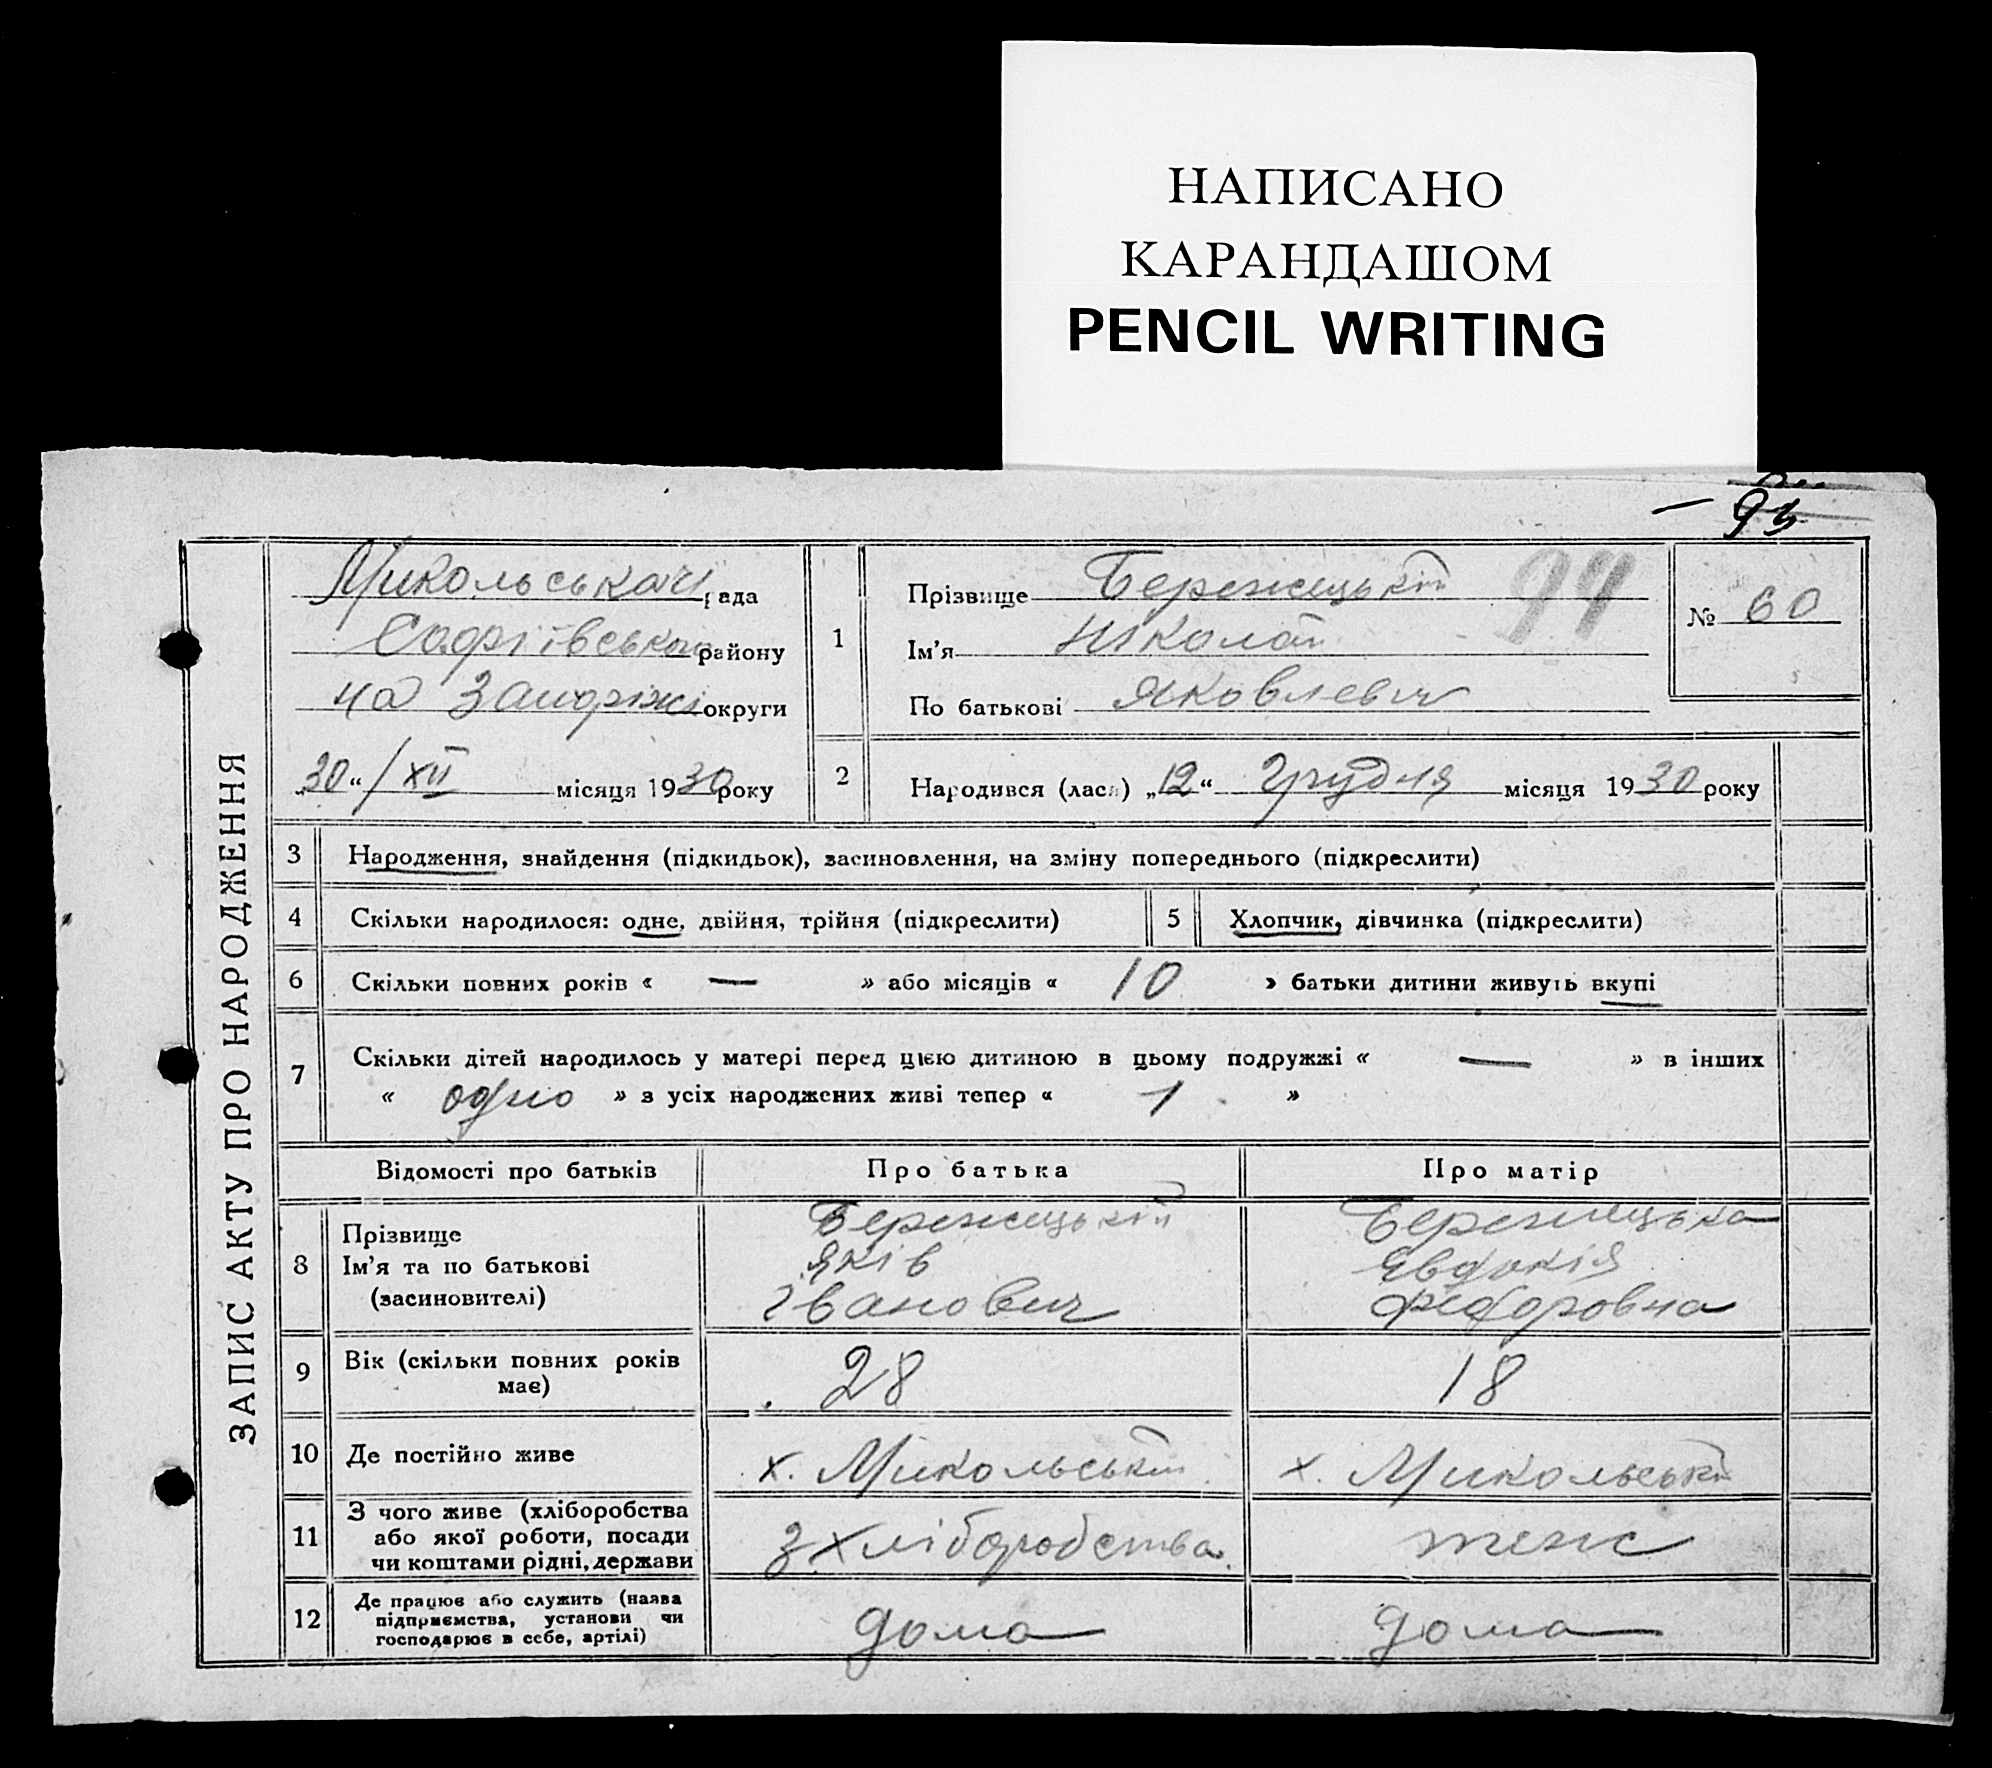 НАПИСАНО
КАРАНДАШОМ
PENCIL WRITING
— 93
ЗАПИС АКТУ ПРО НАРОДЖЕННЯ
Микольська рада
Софіївського району
на Запоріжі округи
„30“ / XII місяця 1930 року
1
Прізвище Бережецький
94
Ім'я Николай
По батькові Яковлевич
№ 60
2
Народився (лася) „12“ Грудня місяця 1930 року
3 Народження, знайдення (підкидьок), засиновлення, на зміну попереднього (підкреслити)
4 Скільки народилося: одне, двійня, трійня (підкреслити)
5 Хлопчик, дівчинка (підкреслити)
6 Скільки повних років « — » або місяців « 10 » батьки дитини живуть вкупі
7 Скільки дітей народилось у матері перед цією дитиною в цьому подружжі « — » в інших
« одно » з усіх народжених живі тепер « 1 »
Відомості про батьків Про батька Про матір
8
Прізвище
Ім'я та по батькові
(засиновителі)
Бережецький
Яків
Іванович
Бережецька
Явдокія
Федоровна
9
Вік (скільки повних років
має)
28
18
10 Де постійно живе
х. Микольський
х. Микольський
11
З чого живе (хліборобства
або якої роботи, посади
чи коштами рідні, держави
З хліборобства
теж
12
Де працює або служить (назва
підприємства, установи чи
господарює в себе, артілі)
дома
дома